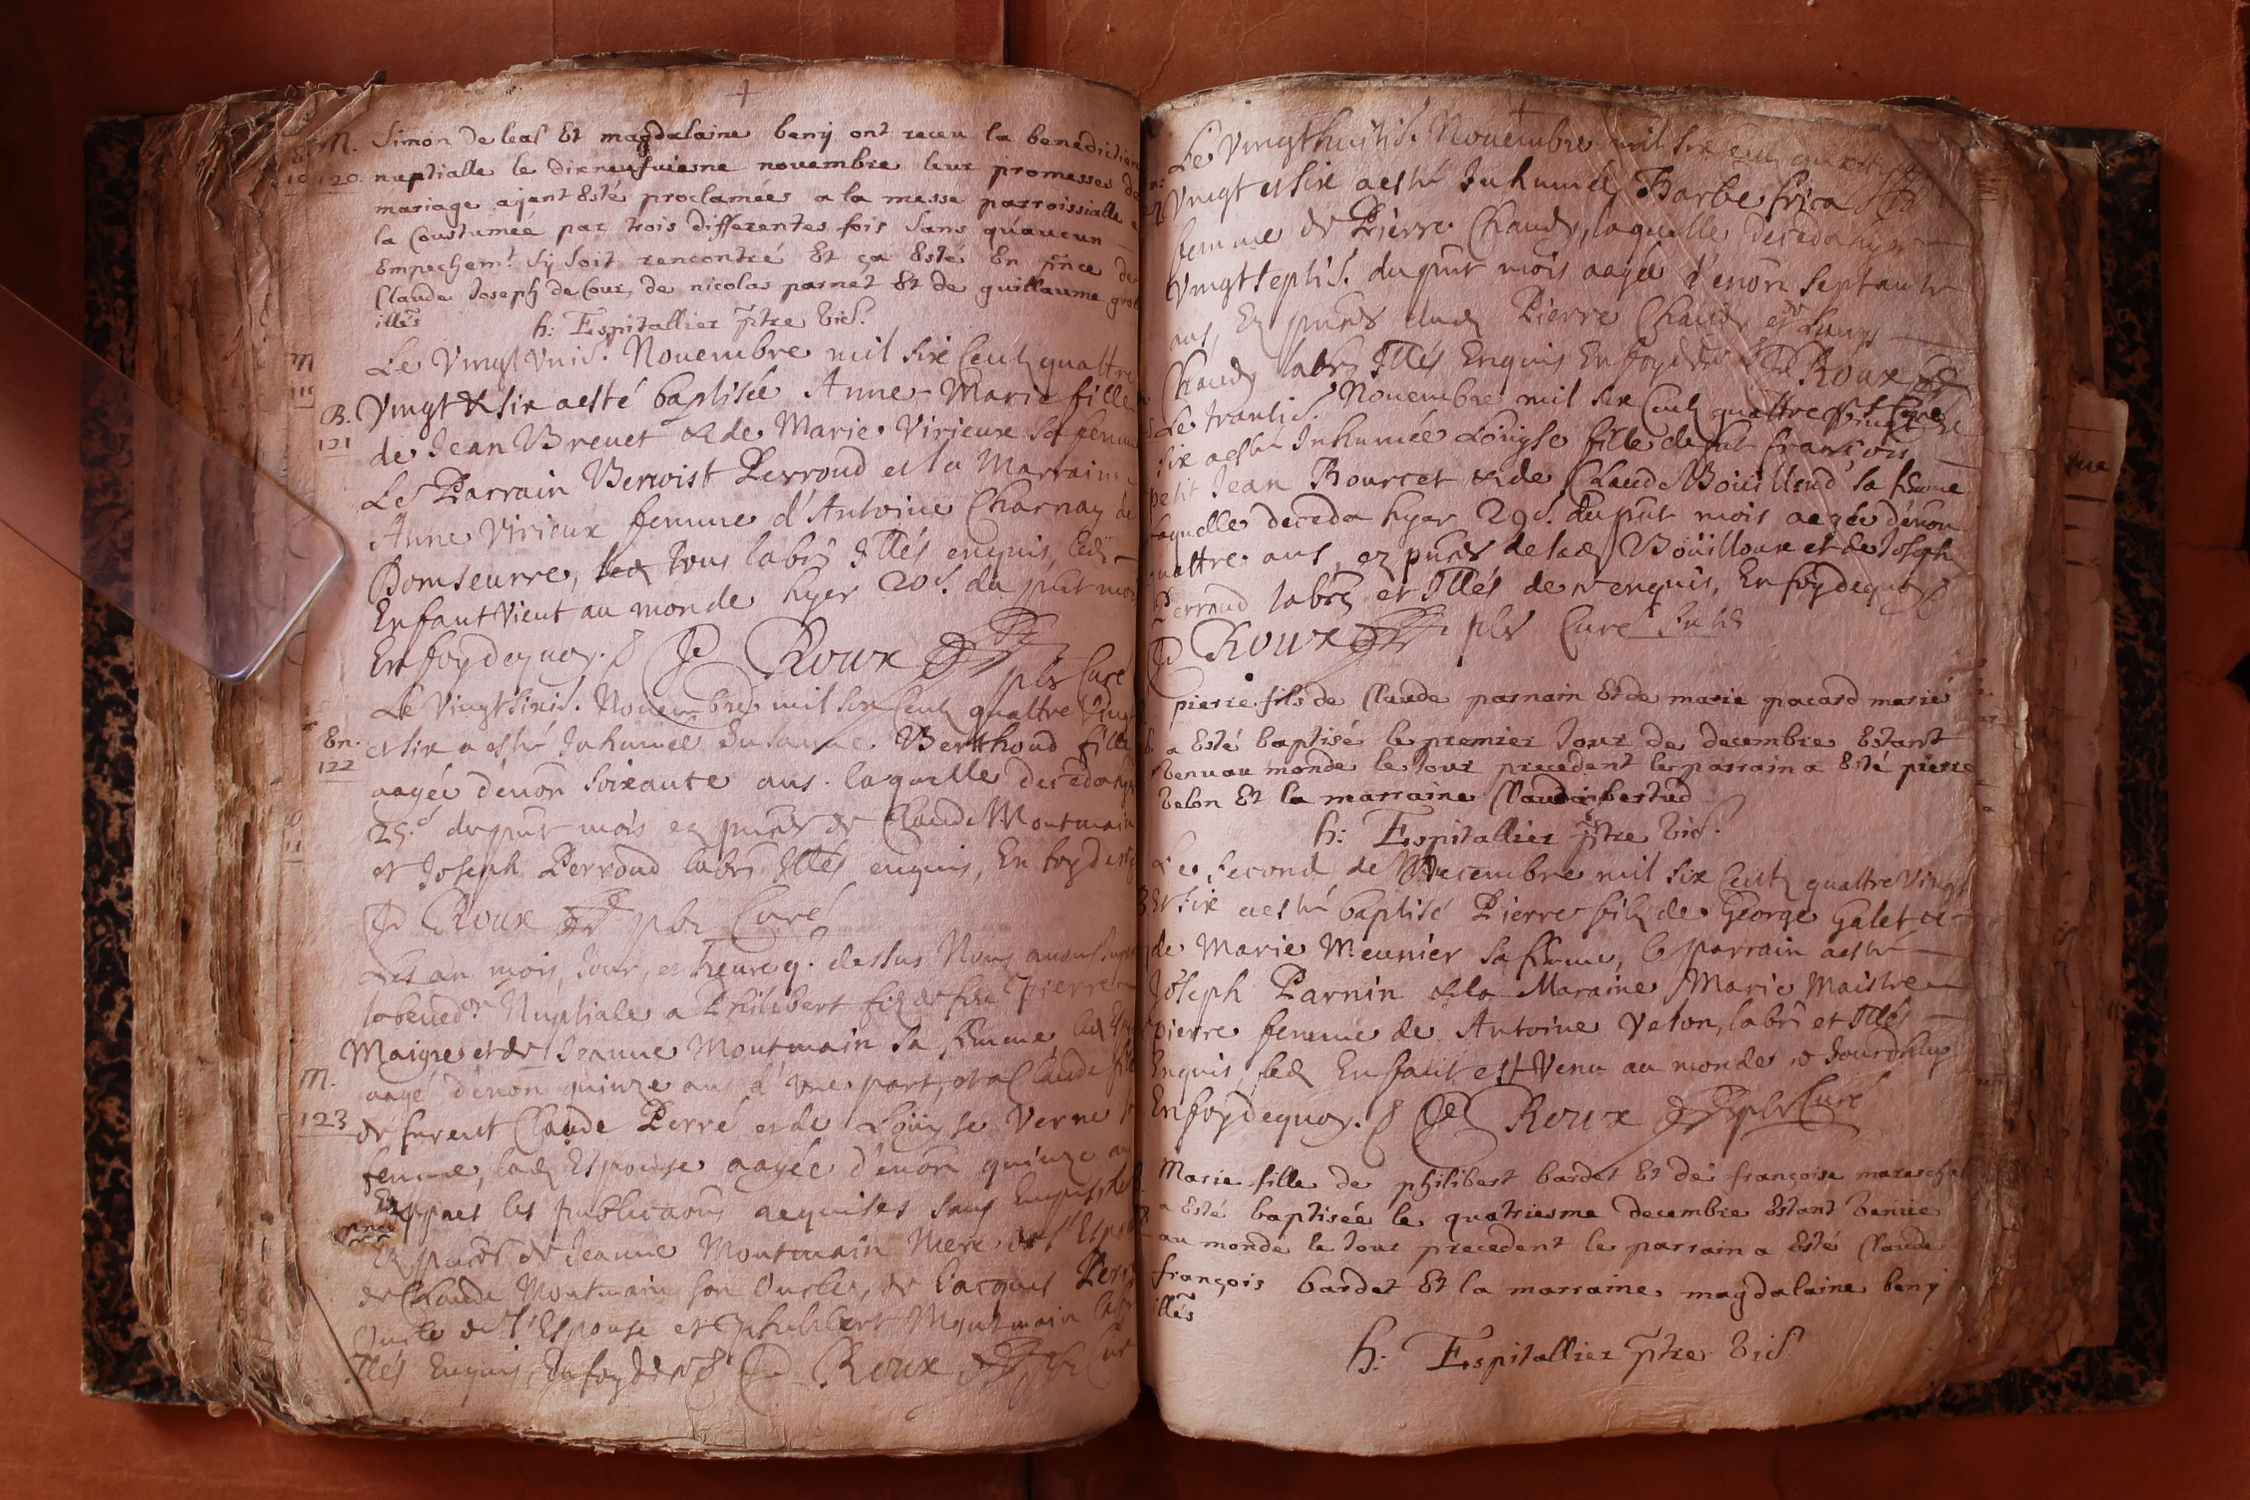 M. Simon de leal Et magdalaine beny ont receu la benediction
120. nuptialle le dixneufuiesme novembre leur promesses de
mariage ajant Esté proclamées a la messe parroissialle a
la Coustumée par trois differentes fois Sans qu'aucun
Empechem.t sy soit rencontré Et ça Esté En pñce de
Claude Joseph de Cour, de nicolas parnet Et de guillaume
illés
h: Espitallier ptre vic.
Le Vingt Unie. Nouembre mil six Centz quattre
B. Vingt & six aesté baptisée Anne-Marie fille
121 de Jean Breuet & de Marie Virieux sa femme
Le Parrain Benoist Perroud et la Marraine
Anne Virieux femme d'Antoine Charnay de
Domseurre, tous labrs Illés enquis, led.
Enfant Vient au monde hyer 20e. du pñt mois
En foy dequoy. Roux
pbr Curé
Le Vingt sixie. Nouembre mil six Centz quattre Vingt
En. et six a esté Inhumée Susanne Berthoud fille
122 aagée d'enon soixante ans. laquelle deceda hyer
25.e du pñt mois ez pñces de Claude Montmain
et Joseph Perroud labrs Illés enquis, En foy de
Roux pbr Curé
Les an, mois, Jour, et heure q. dessus Nous auons
la bened.on Nuptiale a Philibert filz de feu Pierre
Maigre et de Jeanne Montmain sa femme, led.
M. aagé d'enon quinze ans d'Une part, et a Claude fille
123 de furent Claude Perré et de Louyse Verne sa
femme, lad. Espouse aagée d'enon quinze ans
Et apres les publicaons requises sans Empeschem.
Ez pñces de Jeanne Montmain Mere de l'Espoux
de Claude Montmain son Oncle, de Jacques
Oncle de l'Espouse et Philibert Montmain labrs
Illés Enquis, En foy de Roux pbr Curé
Le Vingthuitie. Nouembre mil six centz quattre
Vingt et six a esté Inhumée Barbe frica
femme de Pierre Chaudy, laquelle deceda hyer
Vingtseptie. du pñt mois aagée d'enon septante
ans, Ez pñces dud. Pierre Chaudy et Louys
Chaudy labrs Illés Enquis En foy de Roux
Curé
Le trantie. Nouembre mil six Centz quattre Vingt et
six a esté Inhumée Louyse fille de fut françois
petit Jean Bourcet & de Claude Bouilloud sa femme
laquelle deceda hyer 29e. du pñt mois aagée d'enon
quattre ans, ez pñces de lad. Boüilloux et de Joseph
Perroud labrs et Illés de ce enquis, En foy dequoy
Roux pbr Curé
pierre fils de Claude parnain Et de marie pacard mariés
a Esté baptisé le premier Jour de decembre Estant
venu au monde le Jour precedent le parrain a Esté pierre
velon Et la marraine Claudine bertud
h: Espitallier ptre vic.
Le second de Decembre mil six Centz quattre Vingt
B Et six a esté baptisé Pierre filz de George Galet &
de Marie Meunier sa femme, le parrain a esté
Joseph Parnin & la Maraine Marie Maistre
pierre femme de Antoine Velon, labrs et Illés
Enquis, led. Enfant est Venu au monde ce Jourdhuy
En foy dequoy. Roux pbr Curé
Marie fille de philibert bardet Et de françoise mareschal
a Esté baptisée le quatriesme decembre Estant venüe
au monde le Jour precedent le parrain a Esté Claude
françois bardet Et la marraine magdalaine beny
illés
h: Espitallier ptre vic